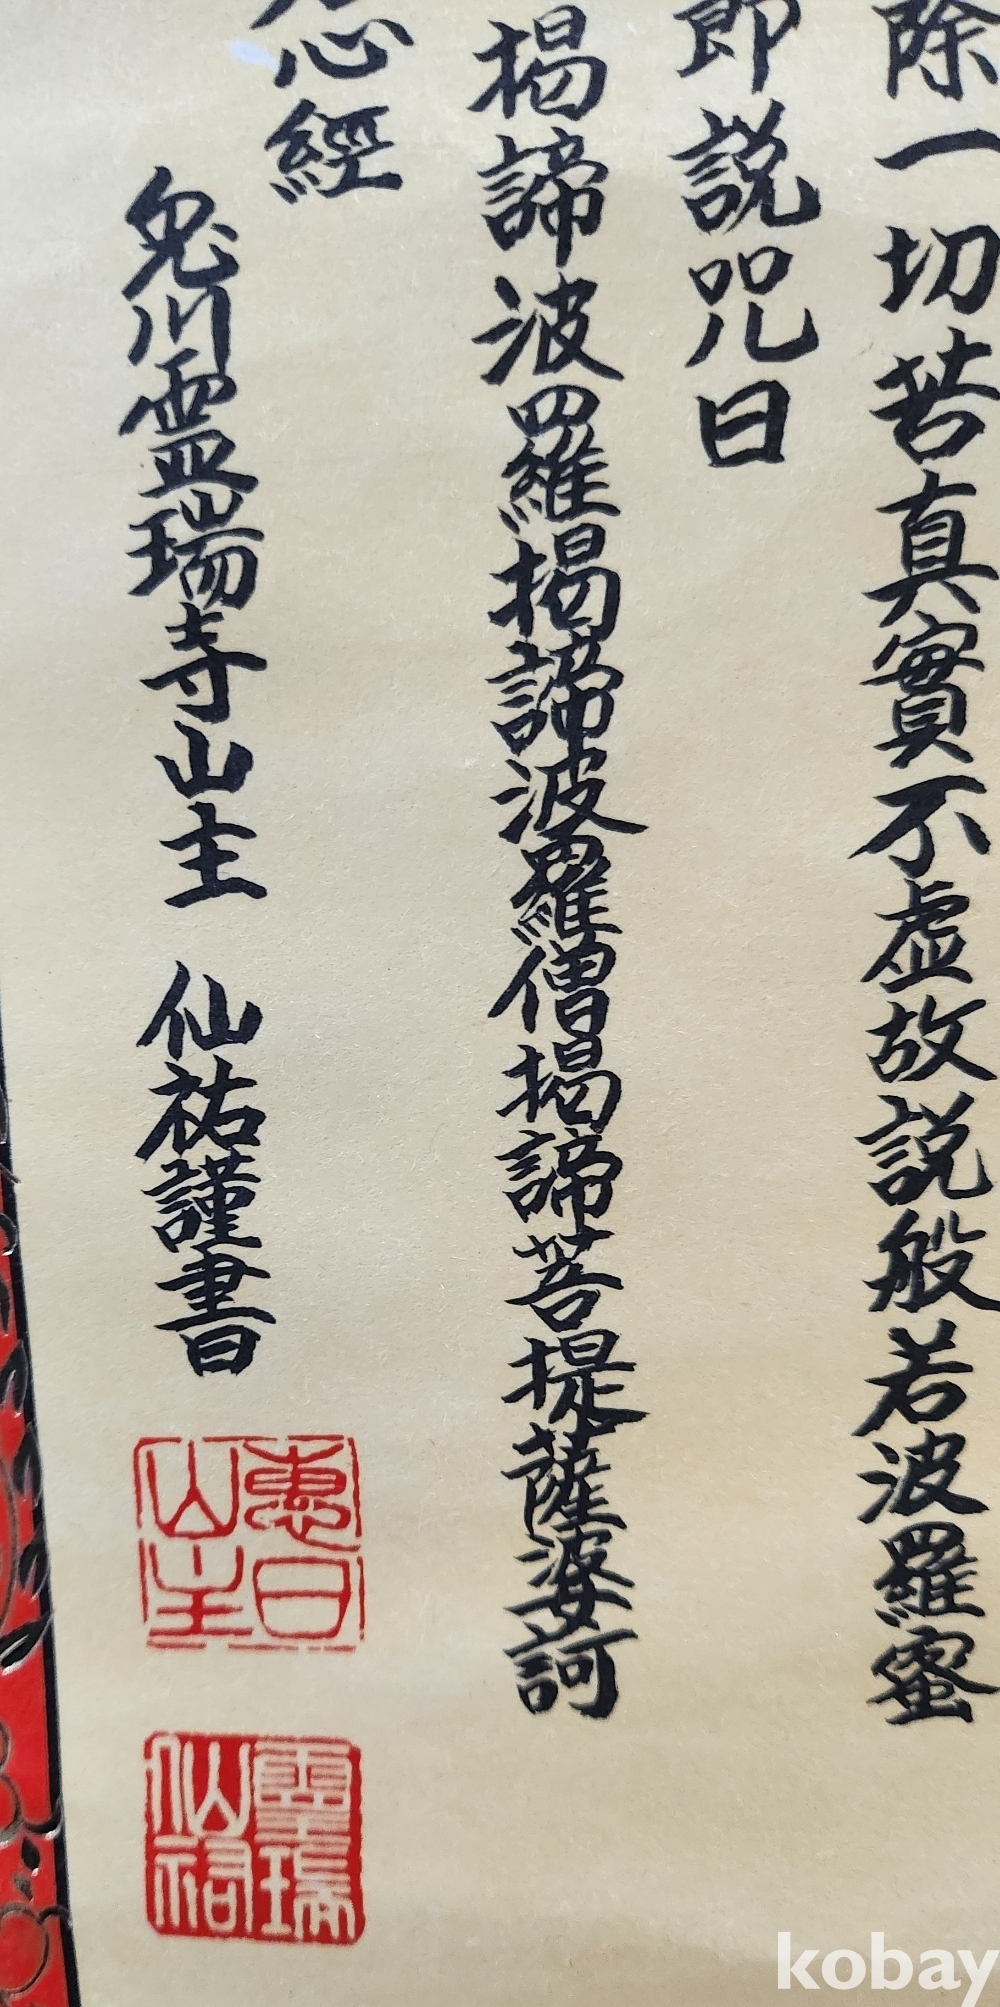 除一切苦真實不虛故説般若波羅蜜
即説咒曰
揭諦波羅揭諦波羅僧揭諦菩提薩婆訶
心經
川靈瑞寺山主 仙祐謹書
惠日山主
靈瑞仙祐
kobay